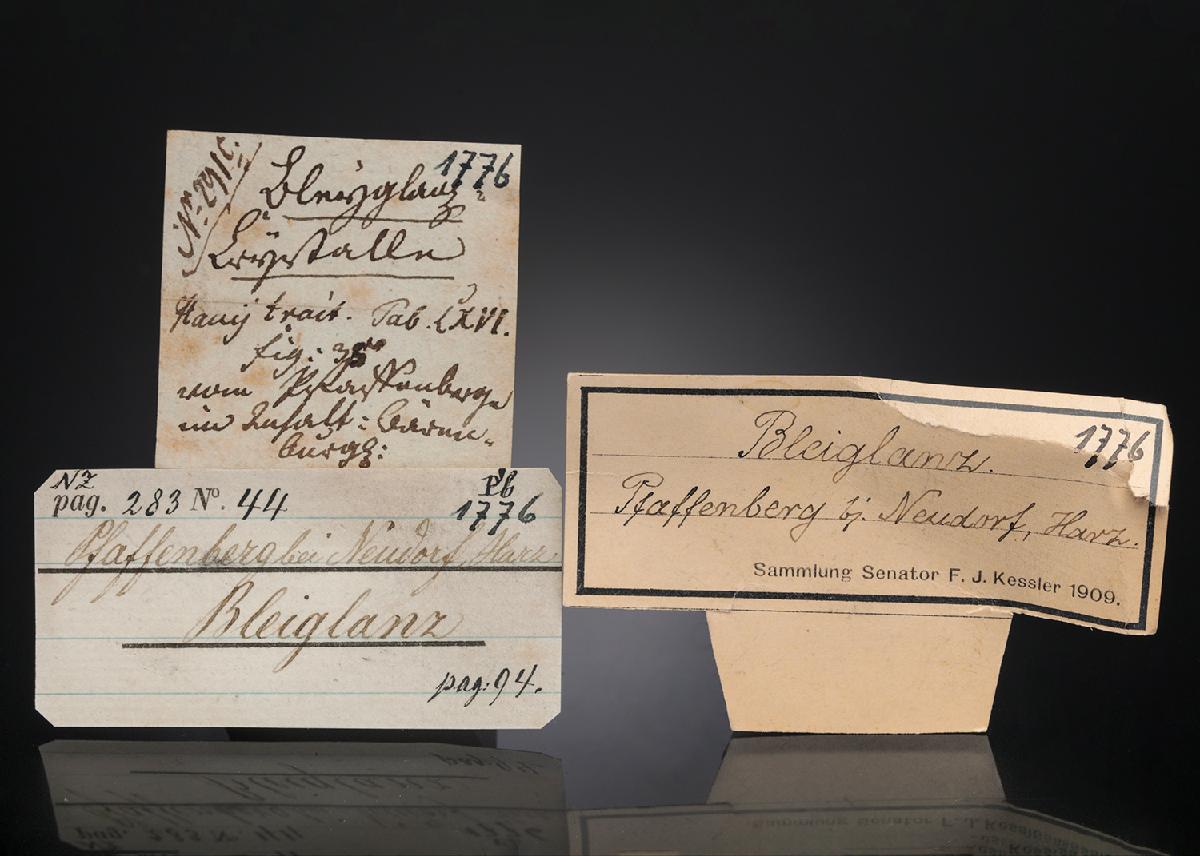 1776
Nr. 291c.
Bleyglanz=
Krystalle
Hauy trait. Tab. LXVI.
fig:
vom Pfaffenberge
im Anhalt: Bären-
burg:
NZ
pag. 283 Nº. 44
Pb
1776
Pfaffenberg bei Neudorf, Harz
Bleiglanz
pag: 94.
1776
Bleiglanz.
Pfaffenberg b/. Neudorf, Harz.
Sammlung Senator F. J. Kessler 1909.